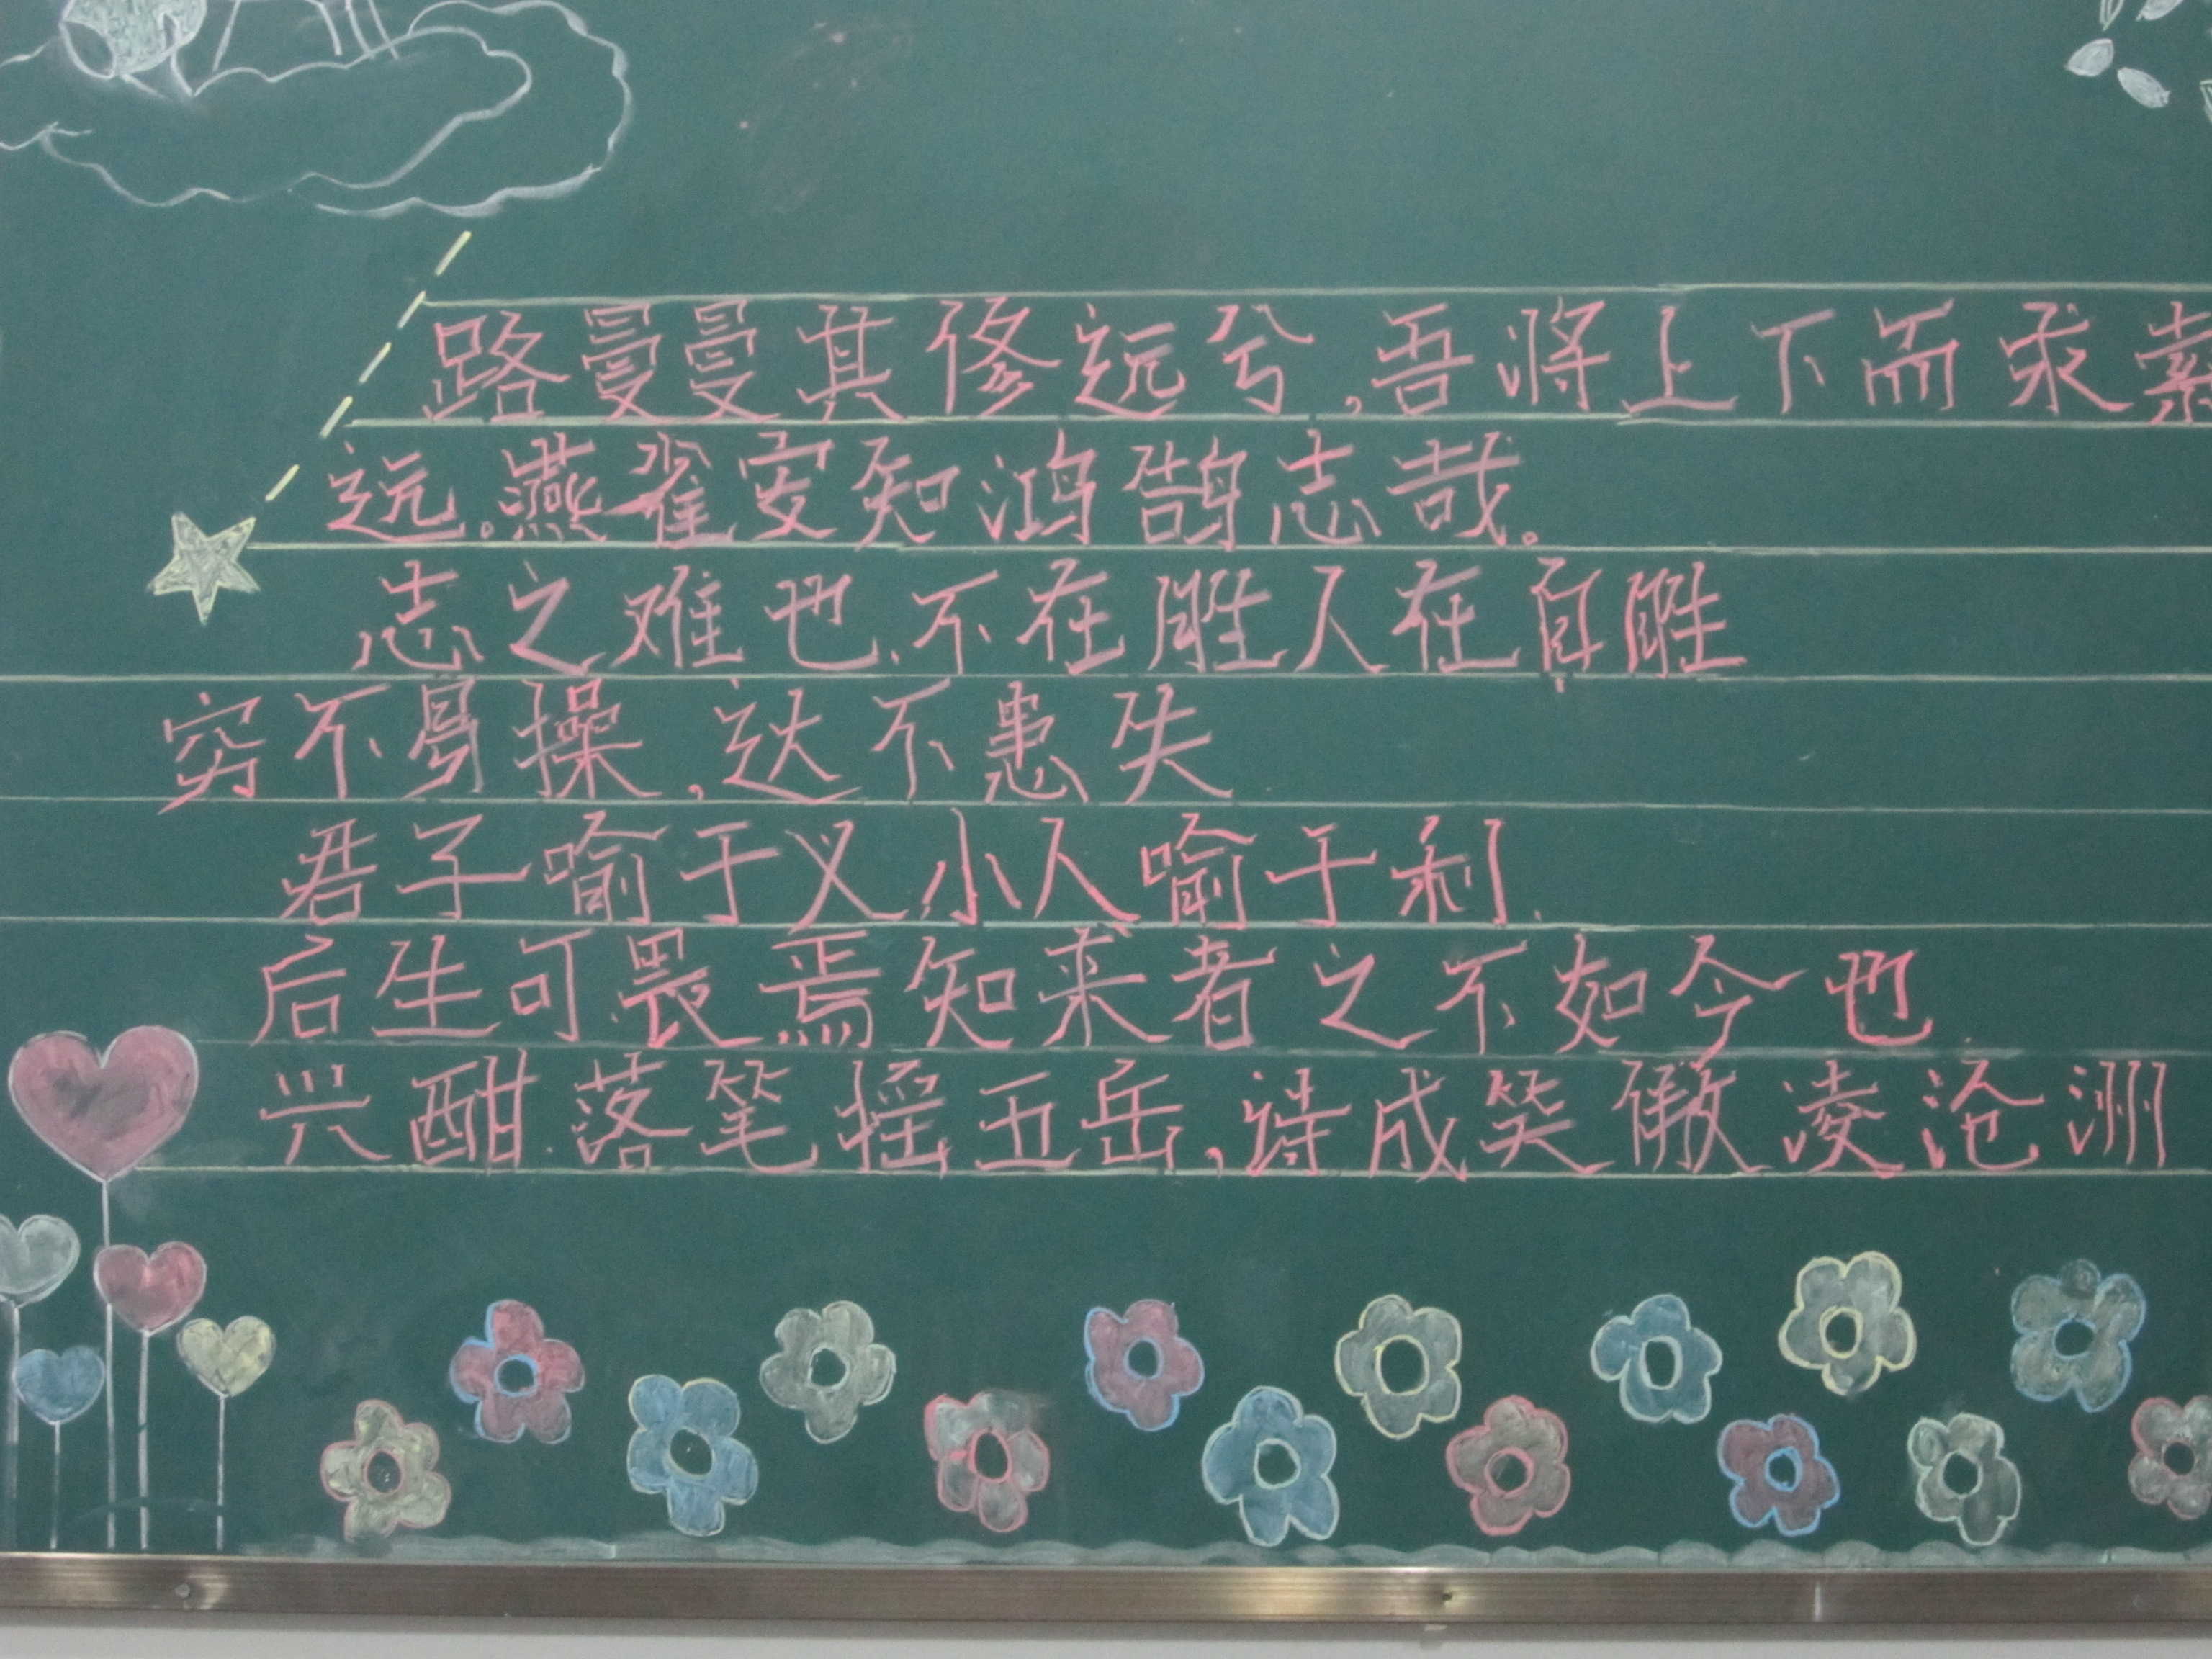 路曼曼其修远兮,吾将上下而求索
远。燕雀安知鸿鹄志哉。
志之难也、不在胜人在自胜
穷不易操,达不患失
君子喻于义小人喻于利.
后生可畏.焉知来者之不如今也.
兴酣.落笔摇五岳,诗成笑傲凌沧洲